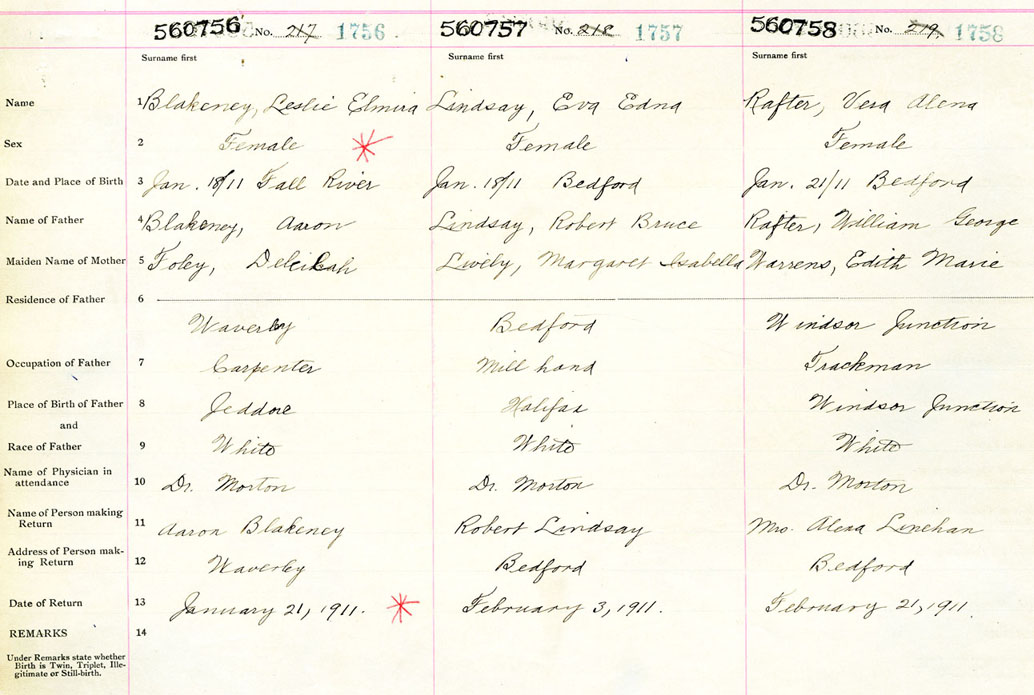 560756 No. 217 1756 560757 No. 218 1757 560758 No. 219 1758
Surname first Surname first Surname first
Name 1 Blakeney, Leslie Elmira Lindsay, Eva Edna Rafter, Vera Alena
Sex 2 Female Female Female
Date and Place of Birth 3 Jan. 18/11 Fall River Jan. 18/11 Bedford Jan. 21/11 Bedford
Name of Father 4 Blakeney, Aaron Lindsay, Robert Bruce Rafter, William George
Maiden Name of Mother 5 Foley, Lively, Margaret Isabella Warrens, Edith Marie
Residence of Father 6
Waverley Bedford Windsor Junction
Occupation of Father 7 Carpenter Mill hand Trackman
Place of Birth of Father 8 Jeddore Halifax Windsor Junction
and
Race of Father 9 White White White
Name of Physician in
attendance 10 Dr. Morton Dr. Morton Dr. Morton
Name of Person making
Return 11 Aaron Blakeney Robert Lindsay Mrs. Alexa Linehan
Address of Person mak-
ing Return 12 Waverley Bedford Bedford
Date of Return 13 January 21, 1911. February 3, 1911. February 21, 1911.
REMARKS 14
Under Remarks state whether
Birth is Twin, Triplet, Ille-
gitimate or Still-birth.